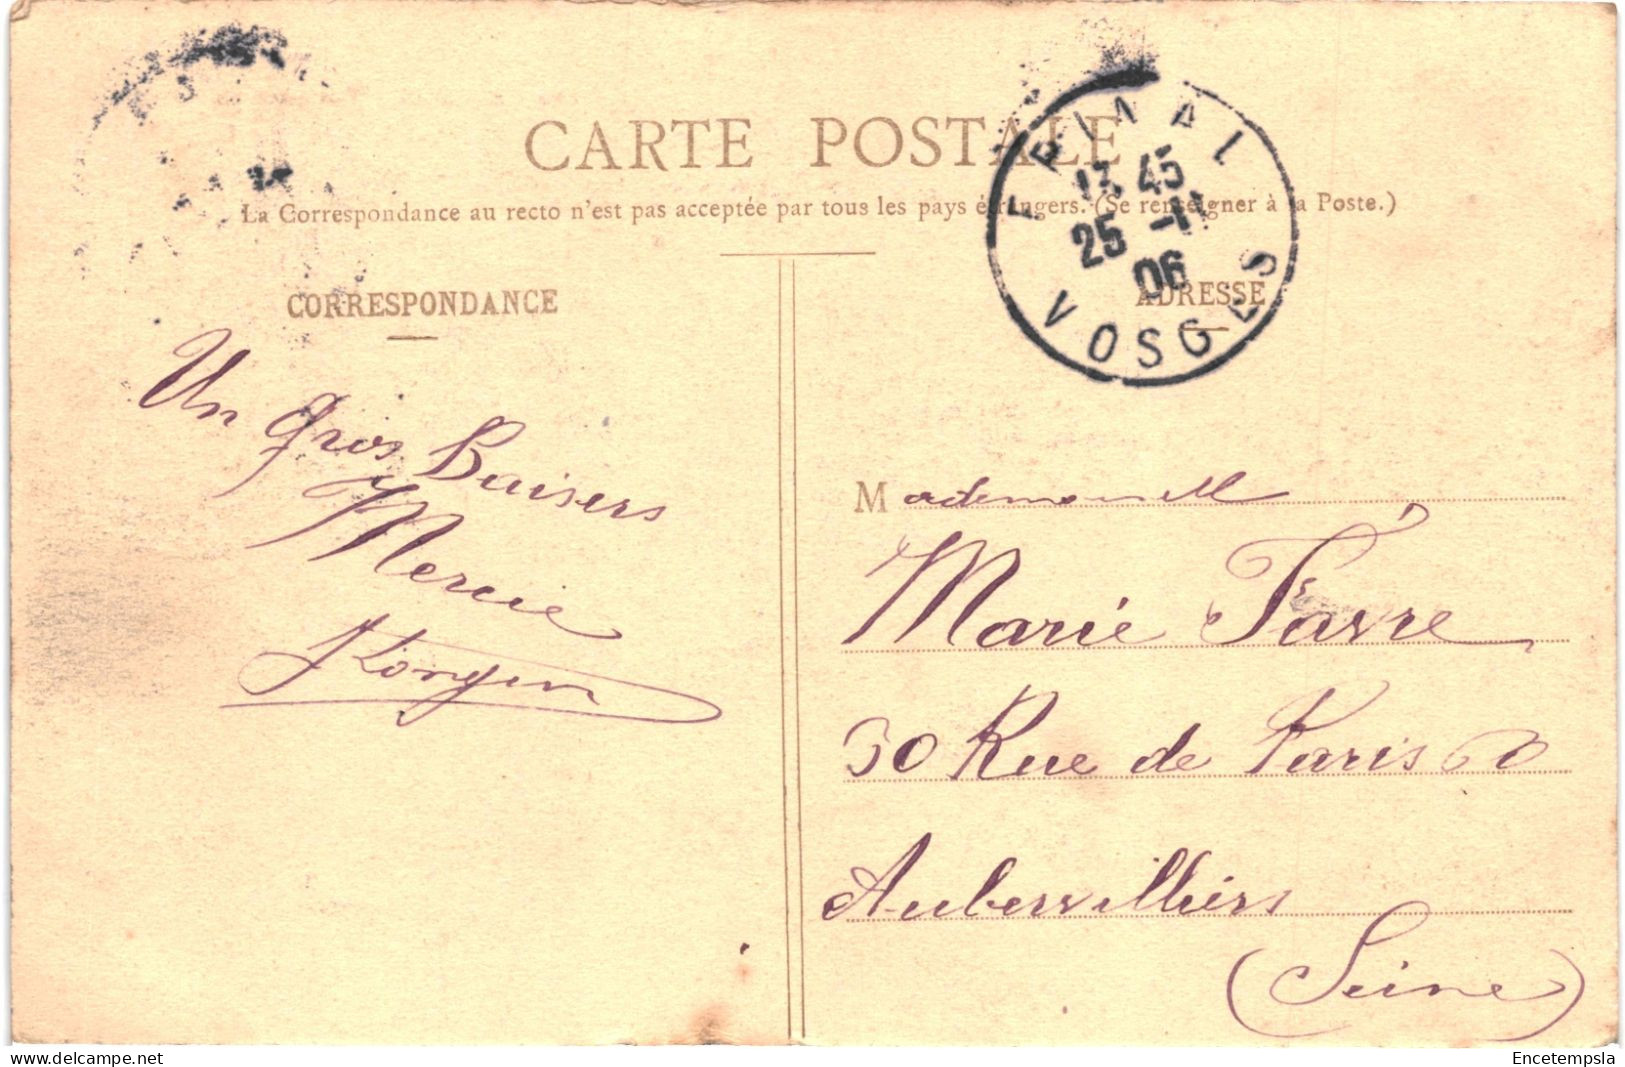 CARTE POSTALE
La Correspondance au recto n'est pas acceptée par tous les pays étrangers. (Se renseigner à la Poste.)
EPINAL
17 45
25 -11
06
VOSGES
CORRESPONDANCE
ADRESSE
Un gros Baisers
Mademoiselle
Marie Favre
30 Rue de Paris
Aubervilliers
(Seine)
www.delcampe.net
Encetempsla